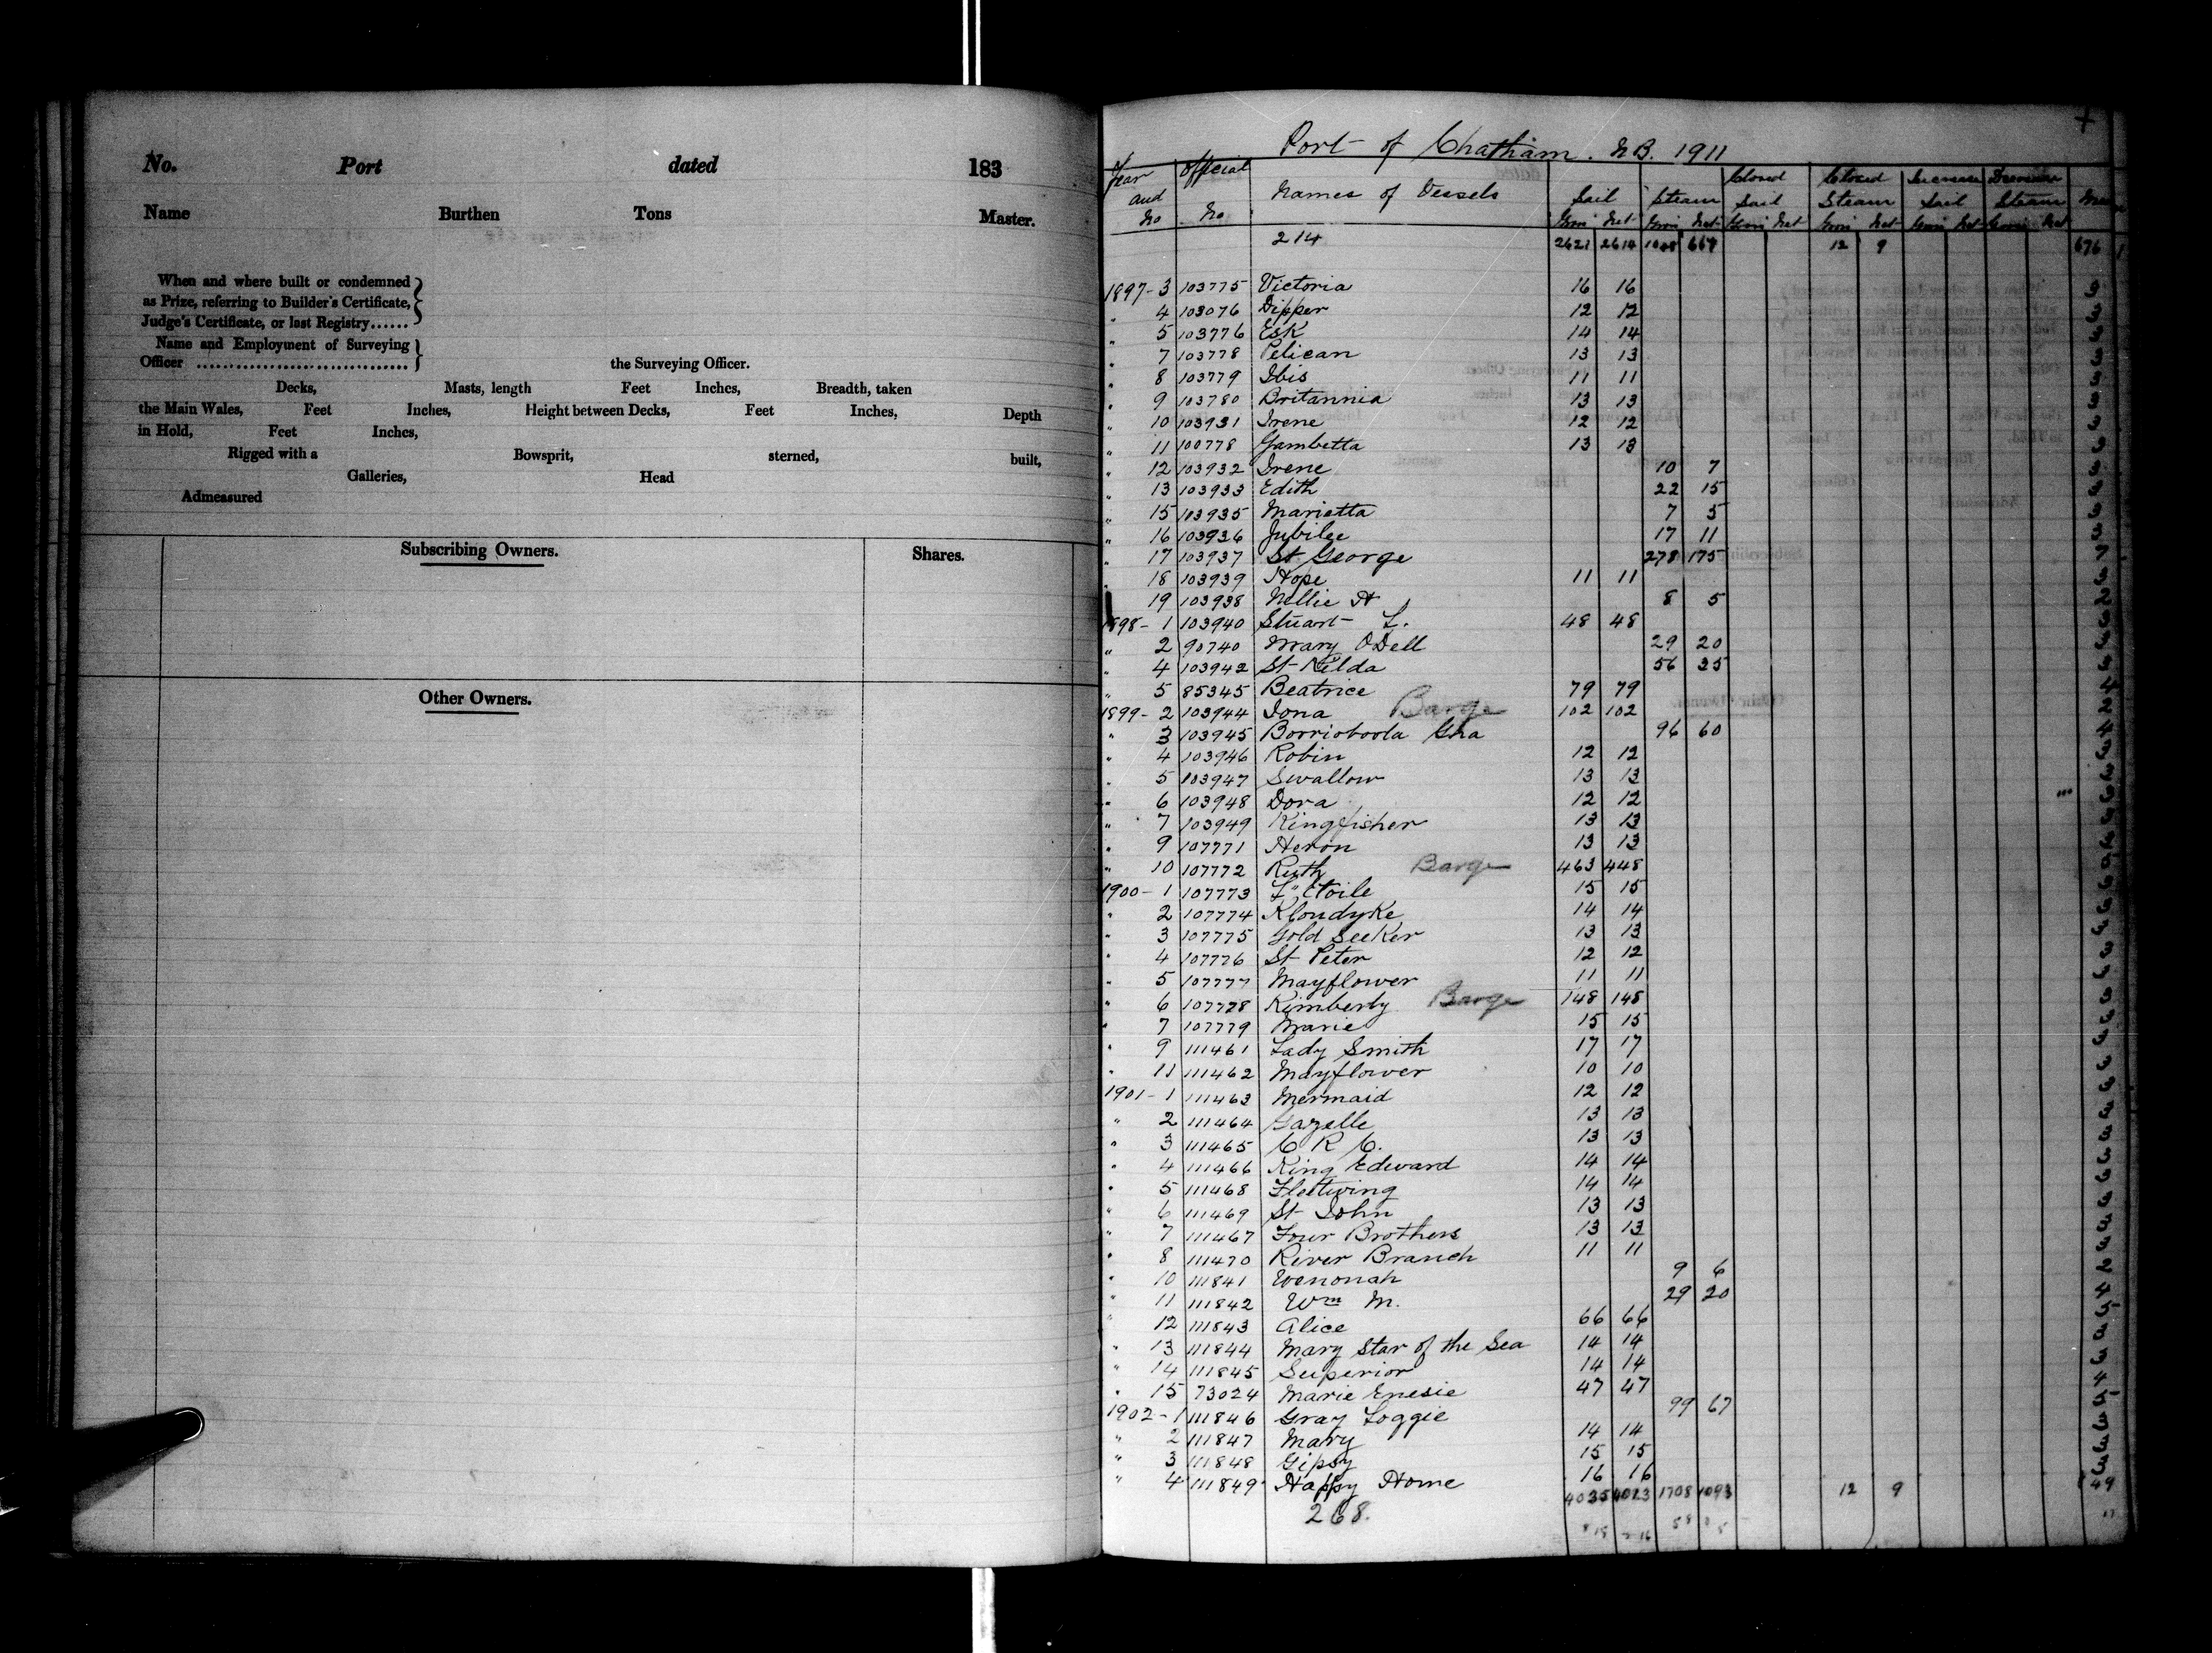 No. Port dated 183
Name Burthen Tons Master.
When and where built or condemned
as Prize, referring to Builder's Certificate,
Judge's Certificate, or last Registry......
Name and Employment of Surveying
Officer ................................. the Surveying Officer.
Decks, Masts, length Feet Inches, Breadth, taken
the Main Wales, Feet Inches, Height between Decks, Feet Inches, Depth
in Hold, Feet Inches,
Rigged with a Bowsprit, sterned, built,
Galleries, Head
Admeasured
Subscribing Owners. Shares.
Other Owners.
Port of Chatham. N.B. 1911
Year and No Official No Names of Vessels Sail Steam Closed Sail Closed Steam Increase Sail Decrease Steam
Gross Net Gross Net Gross Net Gross Net Gross Net Gross Net
214 2621 2614 1048 667 12 9 676
1897-3 103775 Victoria 16 16 6
" 4 103076 Dipper 12 12
" 5 103776 Esk 14 14
" 7 103778 Pelican 13 13
" 8 103779 Ibis 11 11
" 9 103780 Britannia 13 13
" 10 103931 Irene 12 12
" 11 100778 Gambetta 13 13
" 12 103932 Irene 10 7
" 13 103933 Edith 22 15
" 15 103935 Marietta 7 5
" 16 103936 Jubilee 17 11
" 17 103937 St. George 278 175
" 18 103939 Hope 11 11
19 103938 Nellie H 8 5
1898-1 103940 Stuart L. 48 48
" 2 90740 Mary ODell 29 20
" 4 103942 St Kilda 56 35
" 5 85345 Beatrice 79 79
1899-2 103944 Iona Barge 102 102
" 3 103945 Borrioboola Gha 96 60
" 4 103946 Robin 12 12
" 5 103947 Swallow 13 13
" 6 103948 Dora 12 12
" 7 103949 Kingfisher 13 13
" 9 107771 Heron 13 13
" 10 107772 Ruth Barge 463 448
1900-1 107773 L'Etoile 15 15
" 2 107774 Klondyke 14 14
" 3 107775 Gold Seeker 13 13
" 4 107776 St Peter 12 12
" 5 107777 Mayflower 11 11
" 6 107778 Kimberly Barge 148 148
" 7 107779 Marie 15 15
" 9 111461 Lady Smith 17 17
" 11 111462 Mayflower 10 10
1901-1 111463 Mermaid 12 12
" 2 111464 Gazelle 13 13
" 3 111465 C R C. 13 13
" 4 111466 King Edward 14 14
" 5 111468 Fleetwing 14 14
" 6 111469 St John 13 13
" 7 111467 Four Brothers 13 13
" 8 111470 River Branch 11 11
" 10 111841 Wenonah 9 6
" 11 111842 Wm M. 29 20
" 12 111843 Alice 66 66
" 13 111844 Mary Star of the Sea 14 14
" 14 111845 Superior 14 14
" 15 73024 Marie Enesie 47 47
1902-1 111846 Gray Loggie 99 67
" 2 111847 Mary 14 14
" 3 111848 Gipsy 15 15
" 4 111849 Happy Home 16 16
268. 4035 4013 1708 1093 12 9